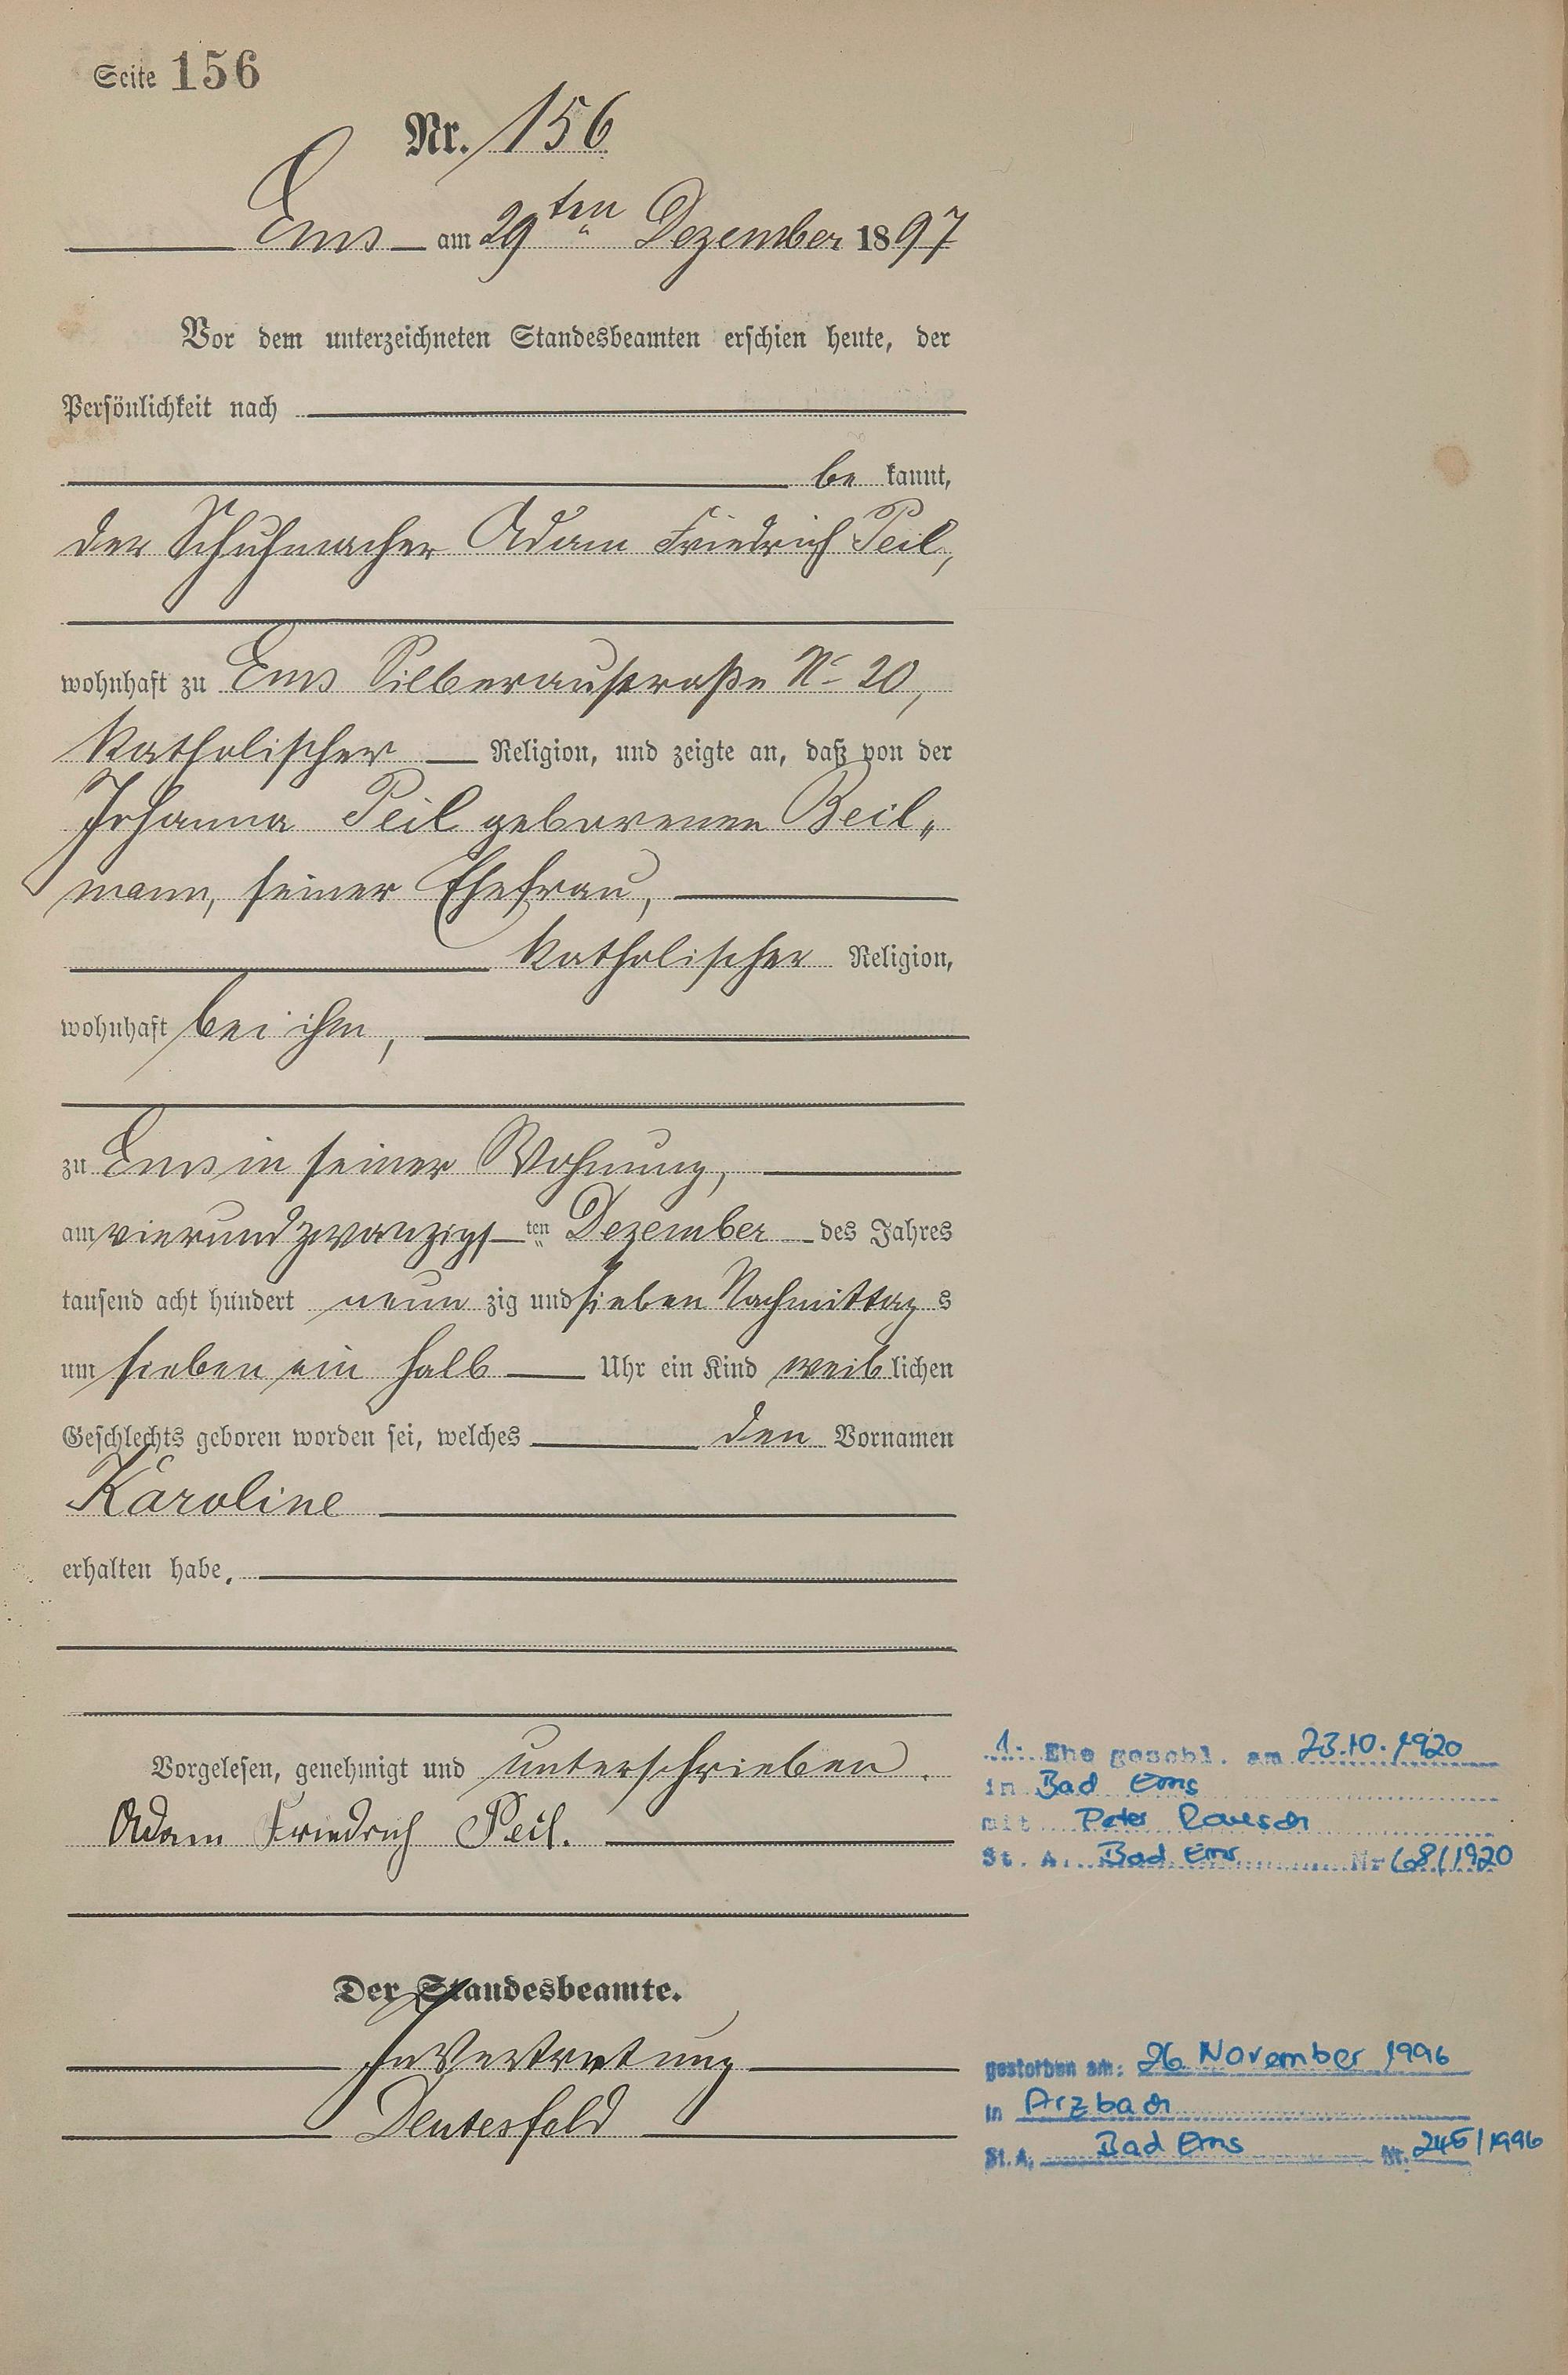 Seite 156
Nr. 156
Ems am 29ten Dezember 1897
Vor dem unterzeichneten Standesbeamten erschien heute, der
Persönlichkeit nach
be kannt,
der Schuhmacher Adam Friedrich Peil,
wohnhaft zu Ems Silberaustraße No 20,
katholischer Religion, und zeigte an, daß von der
Johanna Peil geborenen Beil„
mann, seiner Ehefrau,
katholischer Religion,
wohnhaft bei ihm,
zu Ems in seiner Wohnung,
am vierundzwanzigs ten Dezember des Jahres
tausend acht hundert neun zig und sieben Nachmittag s
um sieben ein halb Uhr ein Kind weib lichen
Geschlechts geboren worden sei, welches den Vornamen
Karoline
erhalten habe.
Vorgelesen, genehmigt und unterschrieben.
Adam Friedrich Peil.
Der Standesbeamte.
In Vertretung
1. Ehe geschl. am 23.10.1920
in Bad Ems
mit Peter Rausch
St. A. Bad Ems Nr 68/1920
gestorben am: 26 November 1996
in Arzbach
St. A. Bad Ems Nr. 245/1996